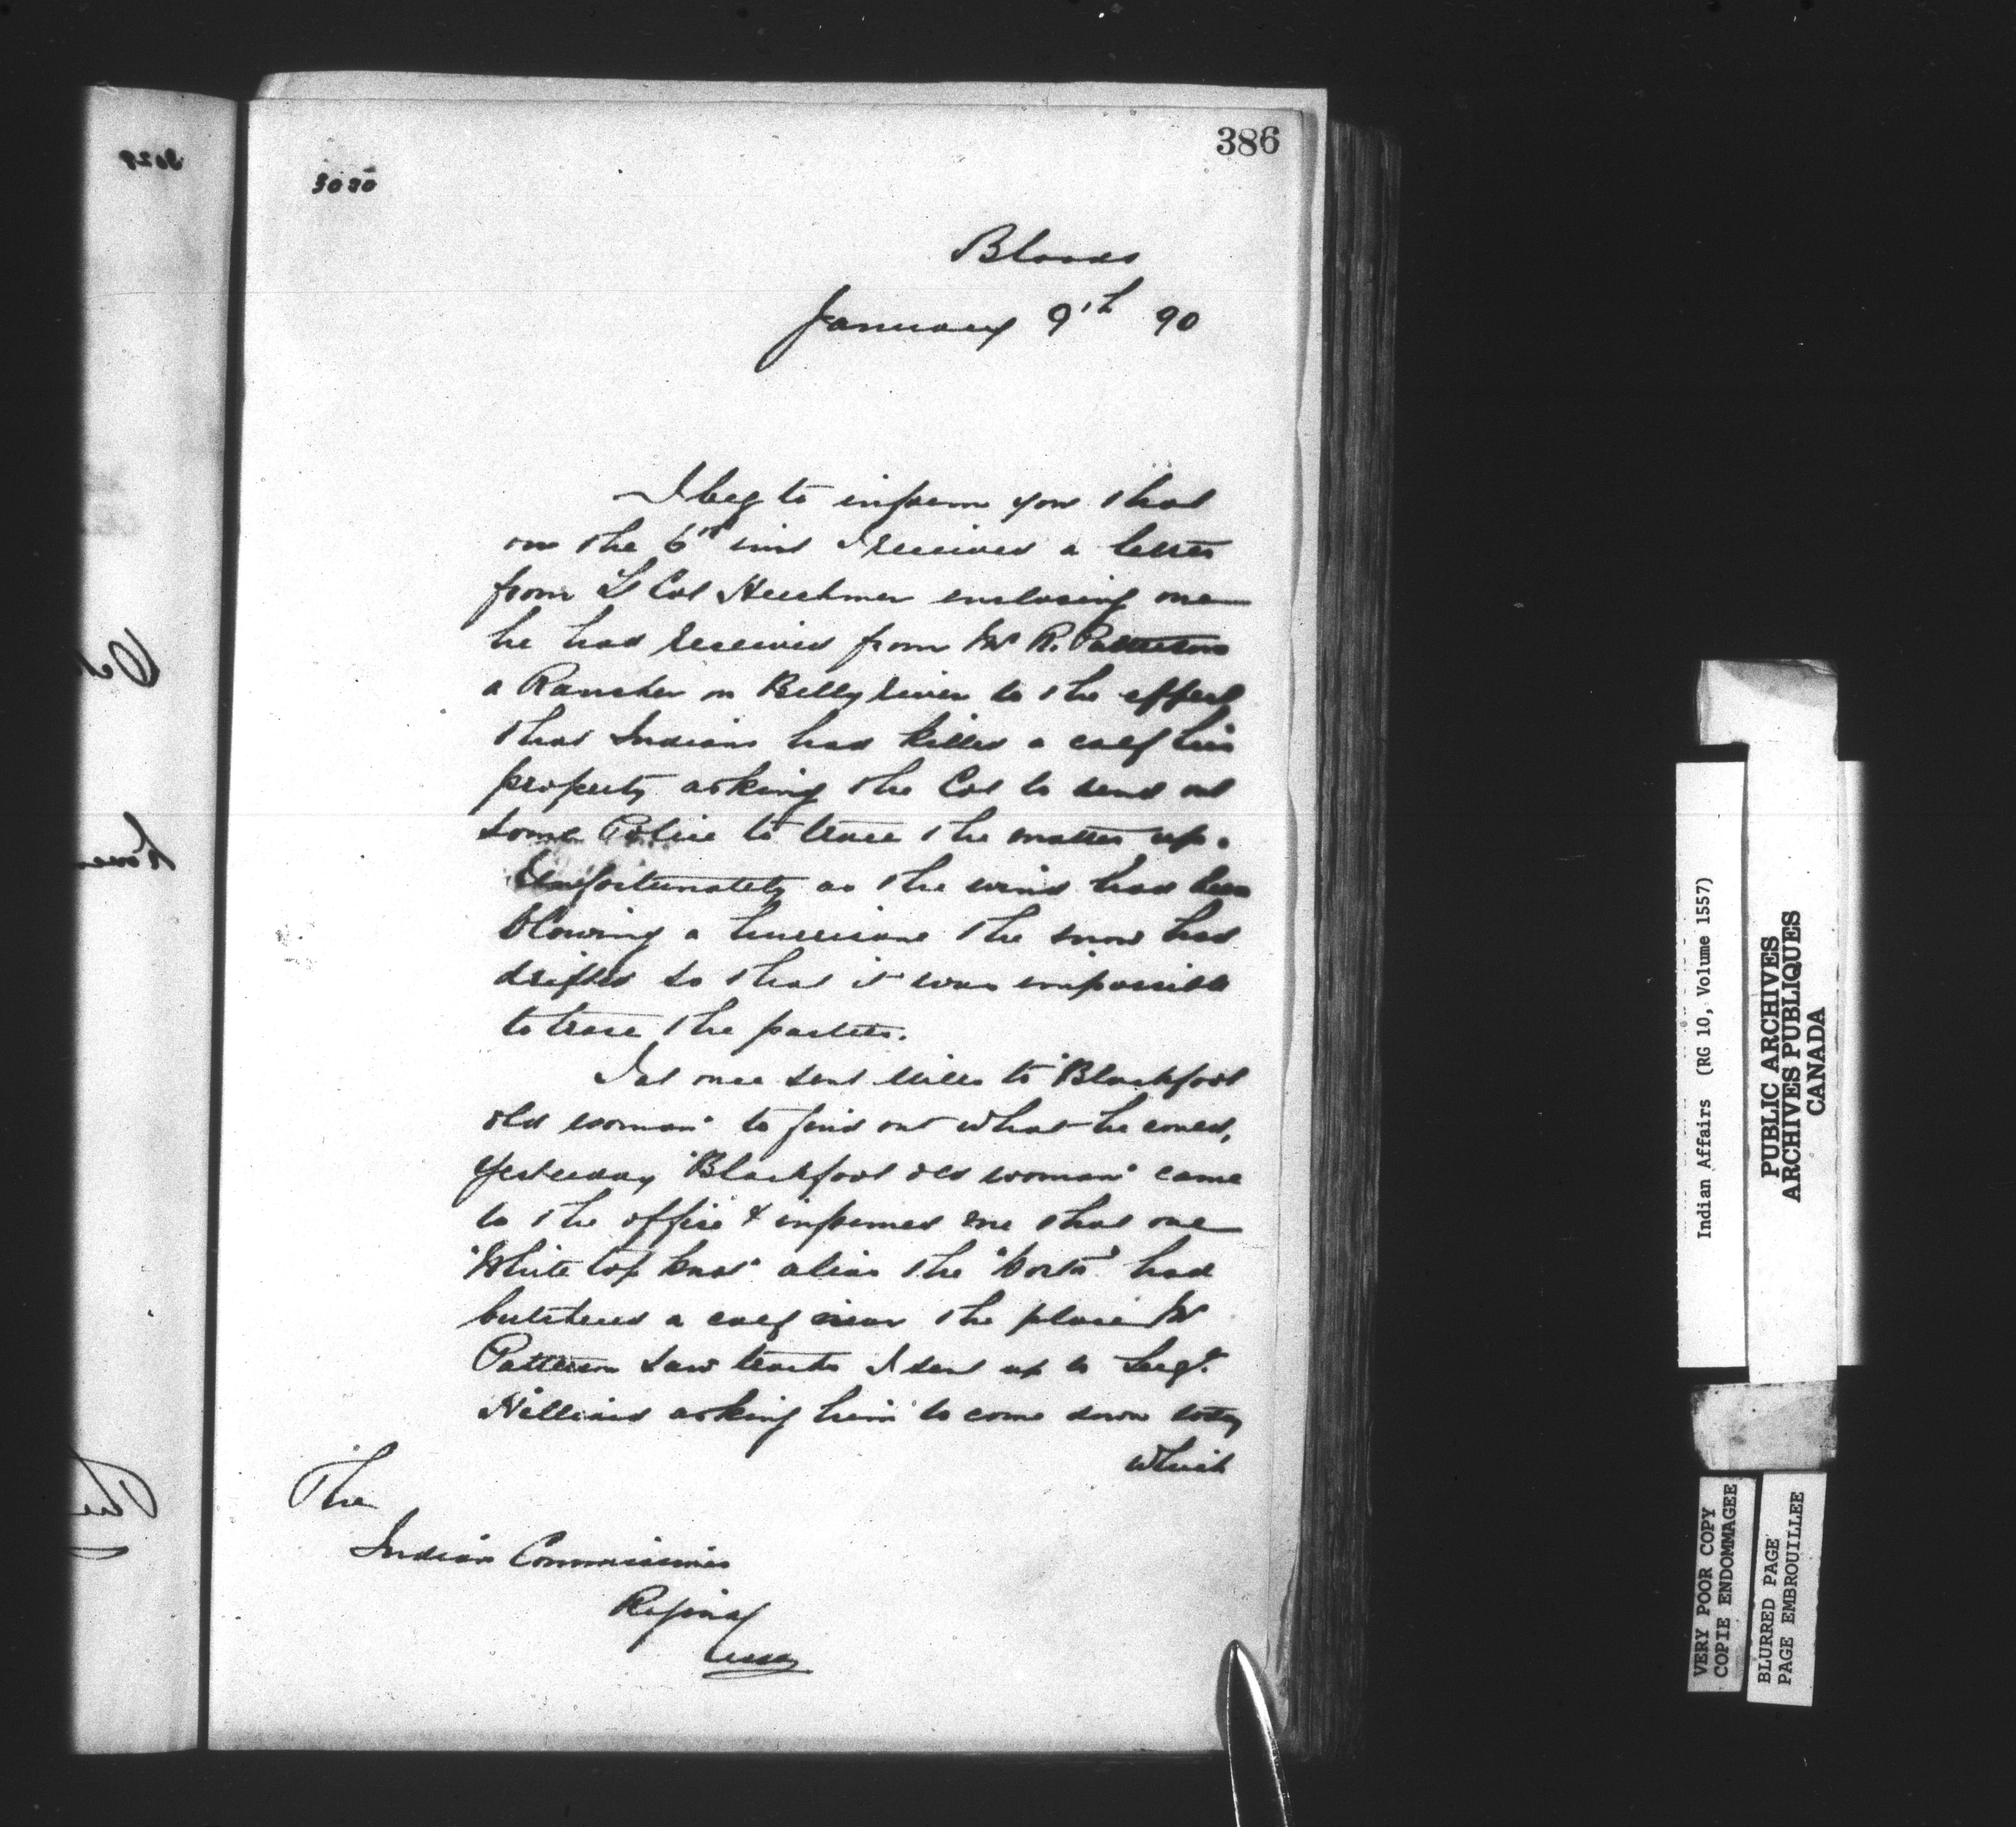 386
3030
Bloods
January 9th 90
I beg to inform you that
on the 6th inst I received a letter
from Lt Col Herchmer enclosing one
he had received from Mr R. Patterson
a Rancher on Belly river to the effect
that Indians had killed a calf his
property asking the Col to send out
some Police to trace the matter up.
Unfortunately as the wind had been
blowing a hurricane the snow had
drifted so that it was impossible
to trace the parties.
I at once sent Mills to "Blackfoot
old woman" to find out what he could,
Yesterday "Blackfoot old woman" came
to the office & informed me that one
"White top knot" alias the had
butchered a calf near the place Mr
Patterson saw tracks I sent up to Sergt.
Hilliard asking him to come down today
which
The
Indian Commissioner
Regina
Assa
3029
Indian Affairs (RG 10, Volume 1557)
PUBLIC ARCHIVES
ARCHIVES PUBLIQUES
CANADA
VERY POOR COPY
COPIE ENDOMMAGEE
BLURRED PAGE
PAGE EMBROUILLEE